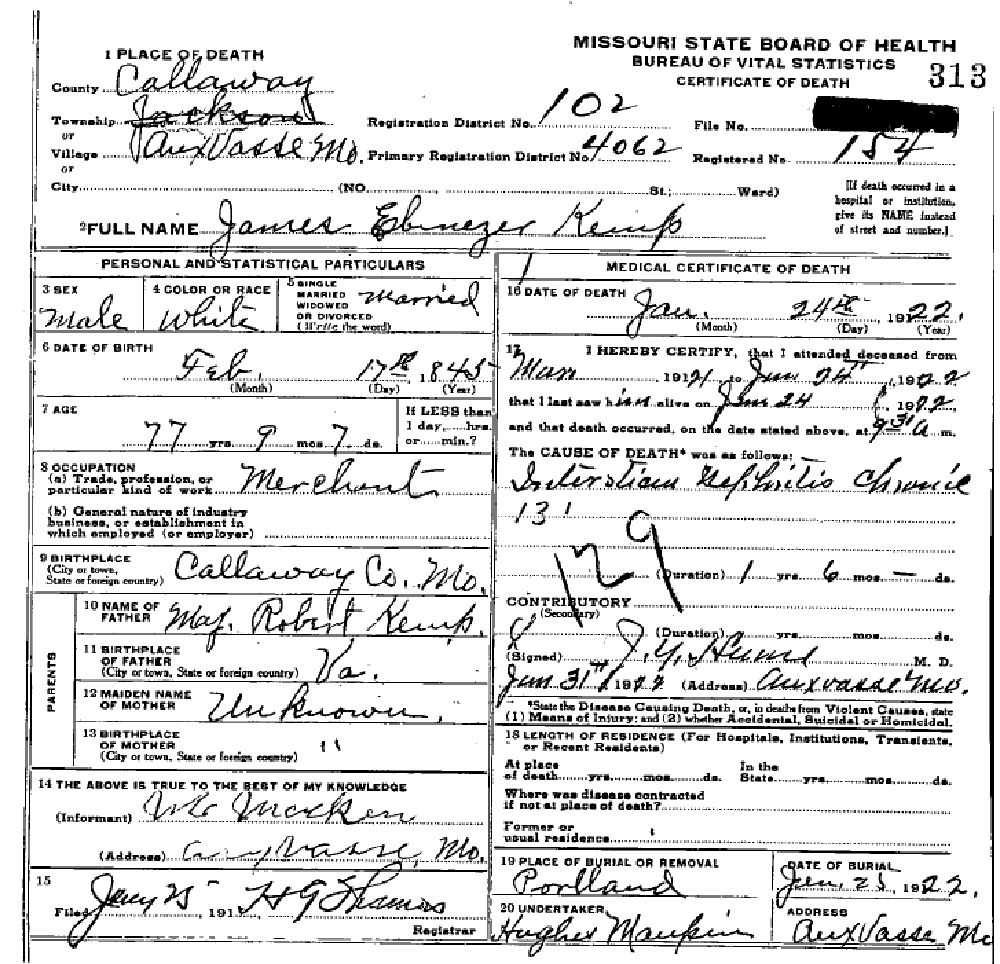 MISSOURI STATE BOARD OF HEALTH
BUREAU OF VITAL STATISTICS
CERTIFICATE OF DEATH
313
1 PLACE OF DEATH
County Callaway
Township Jackson
or
Village Auxvasse Mo.
or
City (NO. St.; Ward)
Registration District No. 102
File No.
Primary Registration District No. 4062
Registered No. 154
[If death occurred in a
hospital or institution,
give its NAME instead
of street and number.]
2 FULL NAME James Ebenezer Kemp
PERSONAL AND STATISTICAL PARTICULARS
3 SEX
Male
4 COLOR OR RACE
White
5 SINGLE
MARRIED
WIDOWED
OR DIVORCED
(Write the word)
Married
6 DATE OF BIRTH
Feb. 17th, 1845
(Month) (Day) (Year)
7 AGE
77 yrs. 9 mos. 7 ds.
If LESS than
1 day, hrs.
or min.?
8 OCCUPATION
(a) Trade, profession, or
particular kind of work Merchant
(b) General nature of industry
business, or establishment in
which employed (or employer)
9 BIRTHPLACE
(City or town,
State or foreign country) Callaway Co. Mo.
PARENTS
10 NAME OF
FATHER Maj. Robert Kemp.
11 BIRTHPLACE
OF FATHER
(City or town, State or foreign country) Va.
12 MAIDEN NAME
OF MOTHER Unknown.
13 BIRTHPLACE
OF MOTHER
(City or town, State or foreign country) "
14 THE ABOVE IS TRUE TO THE BEST OF MY KNOWLEDGE
(Informant)
(Address) Auxvasse, Mo.
15
Filed Jany 25, 191 H G Thomas
Registrar
MEDICAL CERTIFICATE OF DEATH
16 DATE OF DEATH
Jan. 24th 1922.
(Month) (Day) (Year)
17 I HEREBY CERTIFY, that I attended deceased from
1921 to Jan 24th, 1922
that I last saw him alive on Jan 24, 1922,
and that death occurred, on the date stated above, at 9 30 a m.
The CAUSE OF DEATH* was as follows:
Interstitial Nephritis Chronic
131
129
(Duration) 1 yrs. 6 mos. – ds.
CONTRIBUTORY
(Secondary)
(Duration) yrs. mos. ds.
(Signed) M. D.
Jan 31st 1922 (Address) Auxvasse Mo.
*State the Disease Causing Death, or, in deaths from Violent Causes, state
(1) Means of Injury; and (2) whether Accidental, Suicidal or Homicidal.
18 LENGTH OF RESIDENCE (For Hospitals, Institutions, Transients,
or Recent Residents)
At place
of death yrs. mos. ds.
In the
State yrs. mos. ds.
Where was disease contracted
if not at place of death?
Former or
usual residence
19 PLACE OF BURIAL OR REMOVAL
Portland
DATE OF BURIAL
Jan 25 1922.
20 UNDERTAKER
Hughes Maupin
ADDRESS
Auxvasse Mo